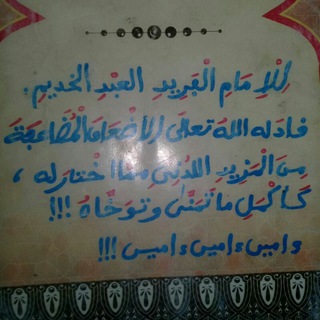 لِلْإِمَامِ الْفَرِيدِ العَبْدِ الخَدِيمِ.
فادله اللهُ تعالَى الأضْعَافَ الْمُضَاعَفَةَ
مِنَ الْمَزِيدِ اللدُنِّى مِمَّا اخْتَارَ له ،
كَأكْمَلِ ما تَمَنَّى وتَوَخَّاهُ !!!
ءامين ءامين ءاميين !!!